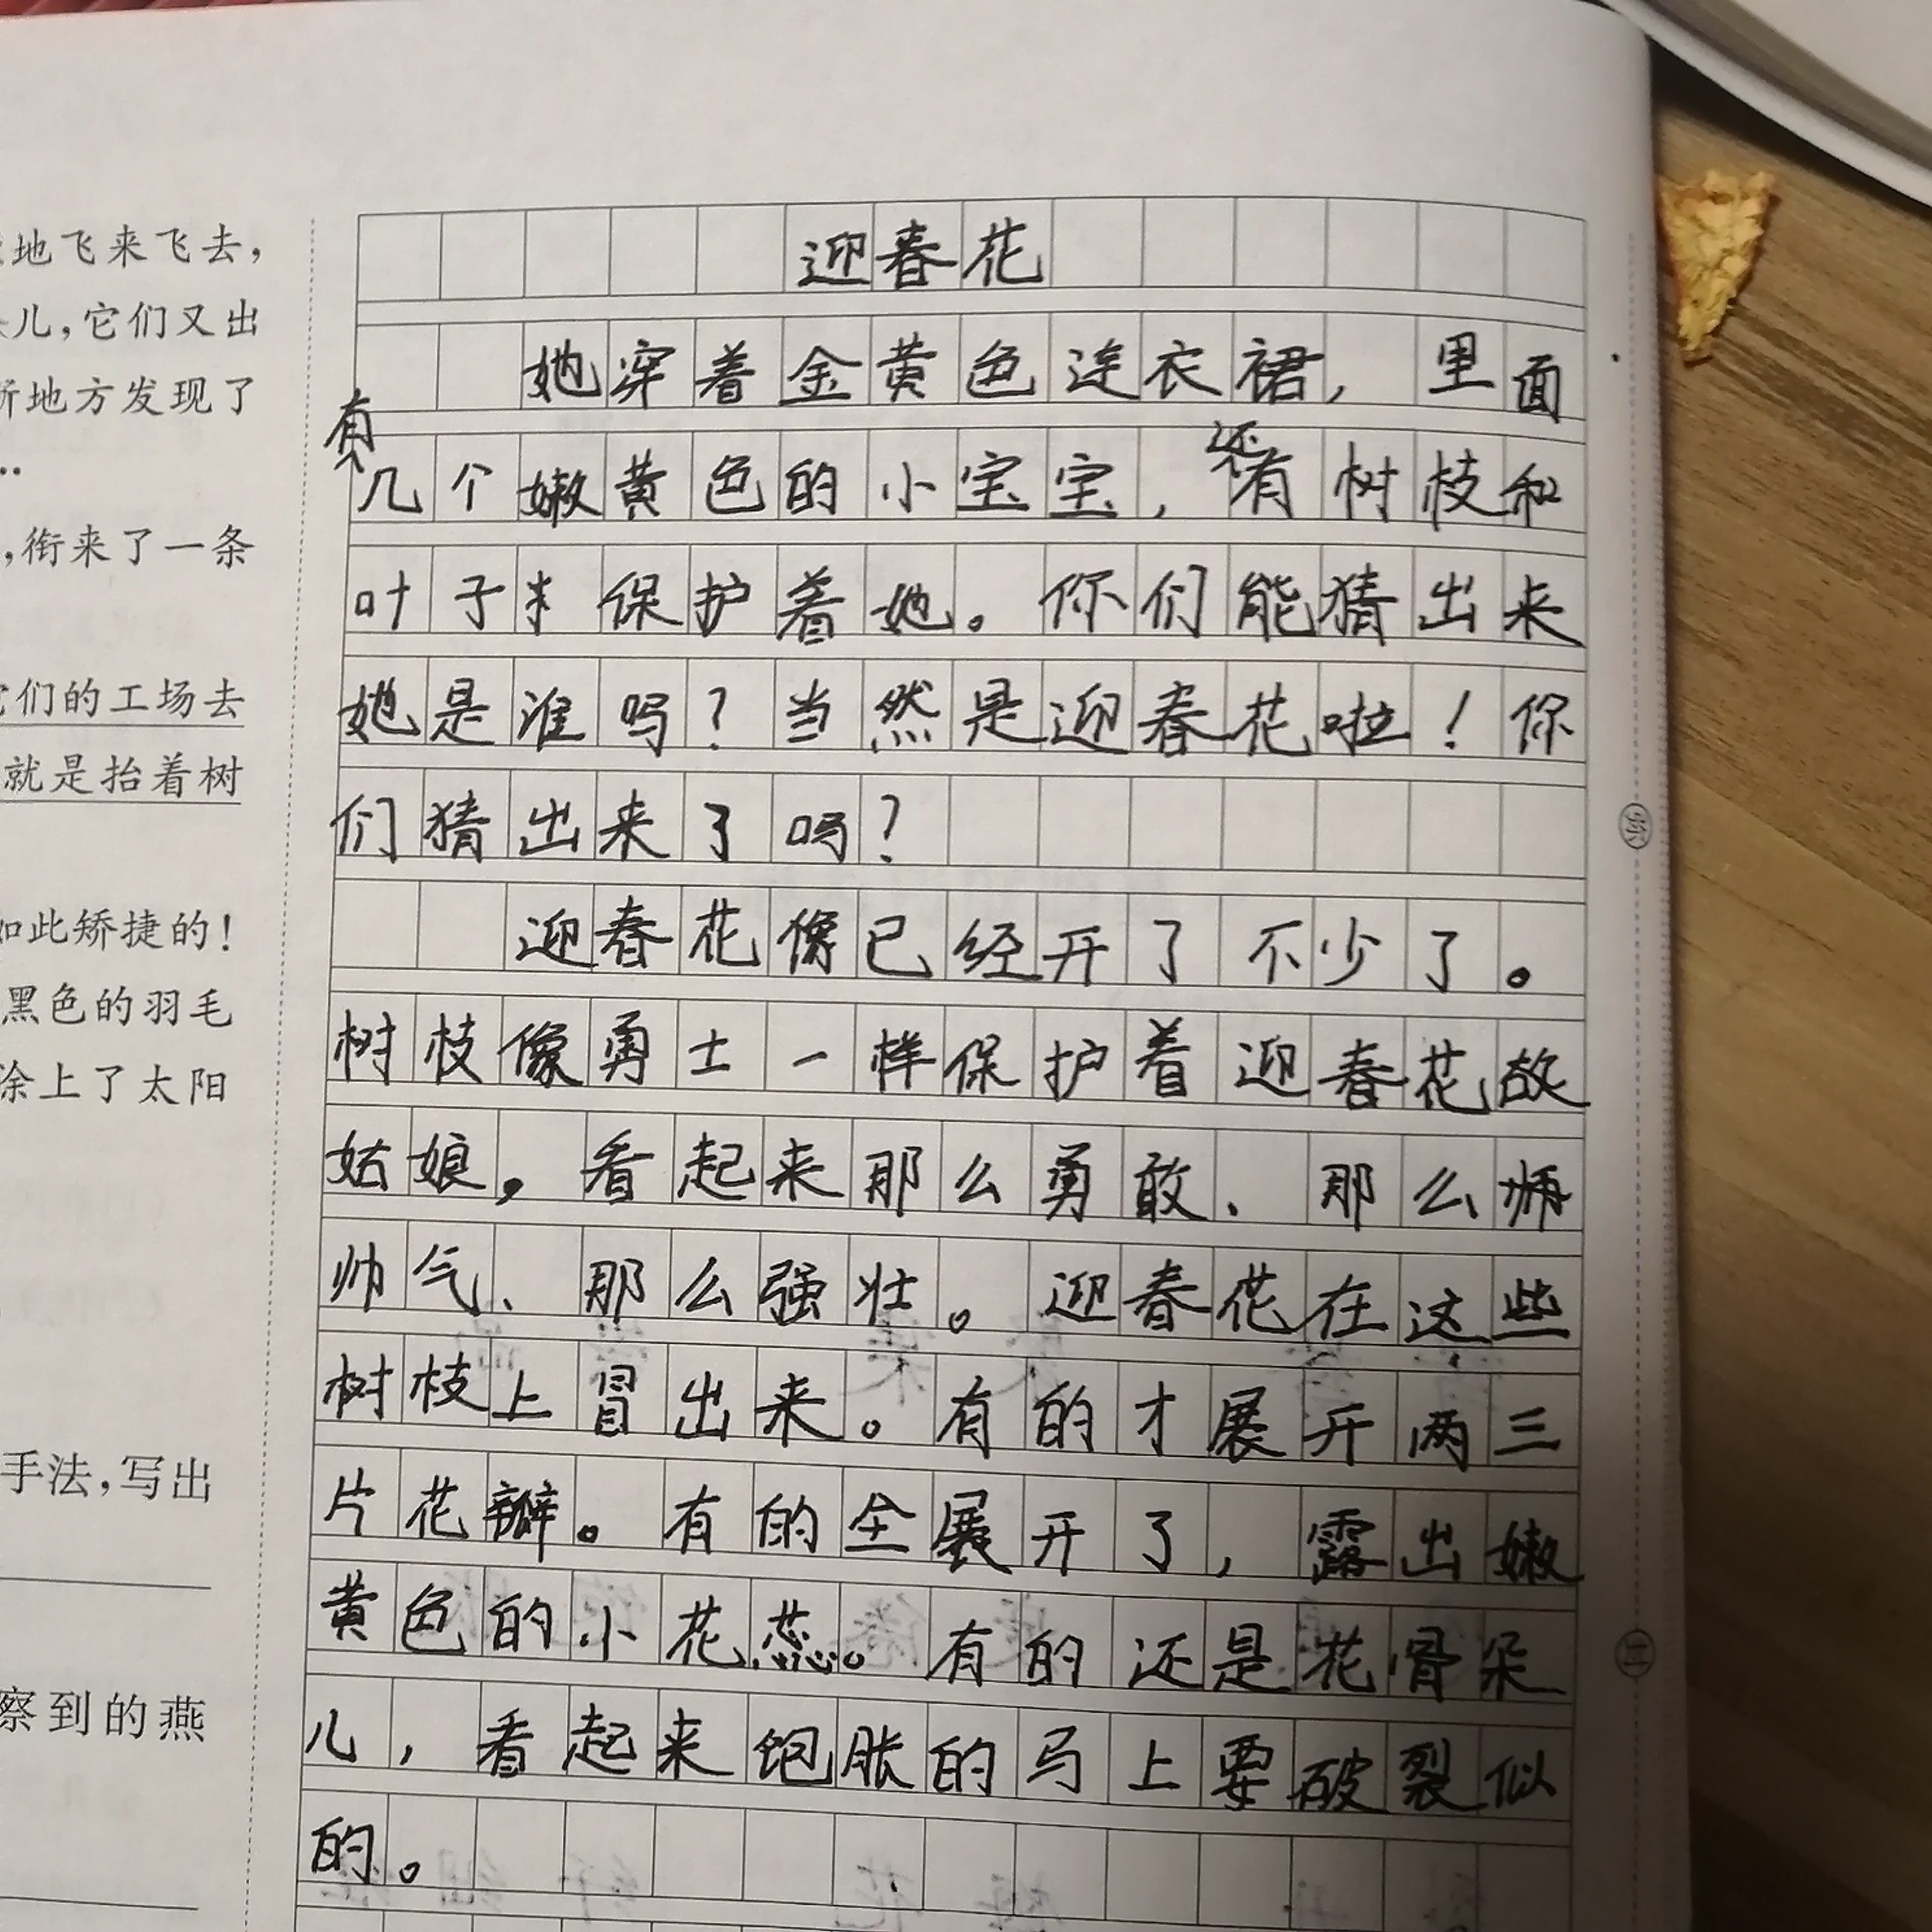 地飞来飞去，
儿，它们又出
地方发现了
…
，衔来了一条
们的工场去
就是抬着树
如此矫捷的！
黑色的羽毛
涂上了太阳
手法，写出
察到的燕
迎春花
她穿着金黄色连衣裙，里面
有几个嫩黄色的小宝宝，还有树枝和
叶子 保护着她。你们能猜出来
她是谁吗？当然是迎春花啦！你
们猜出来了吗？
迎春花像已经开了不少了。
树枝像勇士一样保护着迎春花故
姑娘，看起来那么勇敢、那么
帅气、那么强壮。迎春花在这些
树枝上冒出来。有的才展开两三
片花瓣。有的全展开了，露出嫩
黄色的小花蕊。有的还是花骨朵
儿，看起来饱胀的马上要破裂似
的。